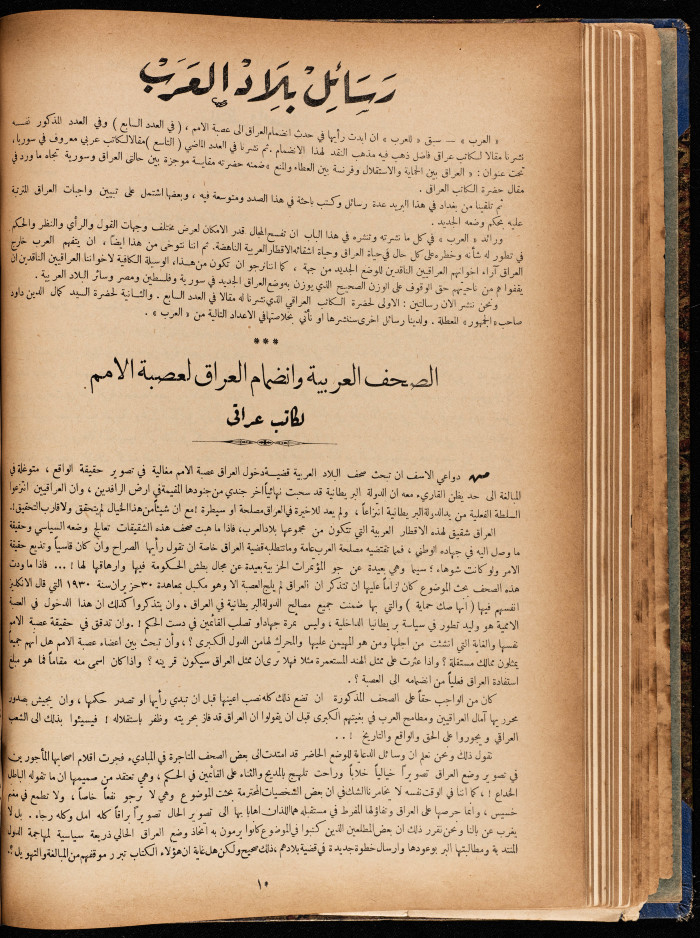 رسائل بلاد العرب
« العرب » — سبق « للعرب » ان ابدت رأيها في حدث انضمام العراق الى عصبة الامم ، ( في العدد السابع ) وفي العدد المذكور نفسه
نشرنا مقالا لكاتب عراقي فاضل ذهب فيه مذهب النقد لهذا الانضمام . ثم نشرنا في العدد الماضي ( التاسع ) مقالا لكاتب عربي معروف في سوريا،
تحت عنوان : « العراق بين الحماية والاستقلال وفرنسة بين العطاء والمنع » ضمنه حضرته مقايسة موجزة بين حالتي العراق وسورية تجاه ما ورد في
مقال حضرة الكاتب العراقي .
ثم تلقينا من بغداد في هذا البريد عدة رسائل وكتب باحثة في هذا الصدد ومتوسعة فيه ، وبعضها اشتمل على تبيين واجبات العراق المترتبة
عليه بحكم وضعه الجديد .
ورائد « العرب » في كل ما نشرته وتنشره في هذا الباب ان تفسح المجال قدر الامكان لعرض مختلف وجهات القول والرأي والنظر والحكم
في تطور له شأنه وخطره على كل حال في حياة العراق وحياة اشقائه الاقطار العربية الناهضة . ثم اننا نتوخى من هذا ايضاً ، ان يتفهم العرب خارج
العراق آراء اخوانهم العراقيين الناقدين للوضع الجديد من جهة ، كما اننا نرجو ان تكون من هذا، الوسيلة الكافية لاخواننا العراقيين الناقدين ان
يقفوا هم من ناحيتهم حق الوقوف على الوزن الصحيح الذي يوزن به وضع العراق الجديد في سورية وفلسطين ومصر وسائر البلاد العربية .
ونحن ننشر الان رسالتين : الاولى لحضرة الكاتب العراقي الذي نشرنا له مقالا في العدد السابع . والثانية لحضرة السيد كمال الدين داود
صاحب « الجمهور » المعطلة . ولدينا رسائل اخرى سننشرها او نأتي بخلاصتها في الاعداد التالية من « العرب » .
***
الصحف العربية وانضمام العراق لعصبة الامم
لكاتب عراقي
من دواعي الاسف ان تبحث صحف البلاد العربية قضية دخول العراق عصبة الامم مغالية في تصوير حقيقة الواقع ، متوغلة في
المبالغة الى حد يظن القاريء معه ان الدولة البريطانية قد سحبت نهائياً آخر جندي من جنودها المقيمة في ارض الرافدين ، وان العراقيين انتزعوا
السلطة الفعلية من يد الدولة البريطانية انتزاعاً ، ولم يعد للاخيرة في العراق مصلحة او سيطرة ! مع ان شيئاً من هذا الخيال لم يتحقق ولا قارب التحقيق!.
العراق شقيق لهذه الاقطار العربية التي تتكون من مجموعها بلاد العرب، فاذا ما هبت صحف هذه الشقيقات تعالج وضعه السياسي وحقيقة
ما وصل اليه في جهاده الوطني ، فما تقتضيه مصلحة العرب عامة وما تتطلبه قضية العراق خاصة ان تقول رأيها الصراح وان كان قاسياً وتذيع حقيقة
الامر ولو كانت شوهاء ؛ سيما وهي بعيدة عن جو المؤثرات الحزبية بعيدة عن مجال بطش الحكومة فيها وارهاقها لها ! ... فاذا ما ودت
هذه الصحف بحث الموضوع كان لزاماً عليها ان تتذكر ان العراق لم يلج العصبة الا وهو مكبل بمعاهدة ٣٠ حزيران سنة ١٩٣٠ التي قال الانكليز
انفسهم فيها ( انها صك حماية ) والتي بها ضمنت جميع مصالح الدولة البريطانية في العراق . وان يتذكروا كذلك ان هذا الدخول في العصبة
الاممية هو وليد تطور في سياسة بريطانيا الداخلية ، وليس ثمرة جهاد او تصلب القائمين في دست الحكم ! . وان تدقق في حقيقة عصبة الامم
نفسها والغاية التي انشئت من اجلها ومن هو المهيمن عليها والمحرك لها من الدول الكبرى ؟ ، وأن تبحث بين اعضاء عصبة الامم هل انهم جميعاً
يمثلون ممالك مستقلة ؟ واذا عثرت على ممثل الهند المستعمرة مثلا فهلا ترى ان ممثل العراق سيكون قرينه ؟ واذا كان اسمى منه مقاماً فما هو مبلغ
استفادة العراق فعلياً من انضمامه الى العصبة ؟ .
كان من الواجب حقاً على الصحف المذكورة ان تضع ذلك كله نصب اعينها قبل ان تبدي رأيها او تصدر حكمها ، وان يجيش بصدور
محرريها آمال العراقيين ومطامح العرب في بغيتهم الكبرى قبل ان يقولوا ان العراق قد فاز بحريته وظفر باستقلاله ! فيسيئوا بذلك الى الشعب
العراقي ويجوروا على الحق والواقع والتاريخ ! . .
نقول ذلك ونحن نعلم ان وسائل الدعاية للوضع الحاضر قد امتدت الى بعض الصحف المتاجرة في المباديء فجرت اقلام اصحابها المأجورين
في تصوير وضع العراق تصويراً خيالياً خلاباً وراحت تلهج بالمديح والثناء على القائمين في الحكم ، وهي تعتقد من صميمها ان ما تقوله الباطل
الخداع ! ، كما اننا في الوقت نفسه لا يخامرنا الشك في ان بعض الشخصيات المحترمة بحثت الموضوع وهي لا ترجو نفعاً خاصاً ، ولا تطمع في مغنم
خسيس ، وانما حرصها على العراق وتفاؤلها المفرط في مستقبله هما اللذان اهابا بها الى تصوير الحال تصويراً براقاً كله امل وكله رجاء . بل لا
يغرب عن بالنا ونحن نقرر ذلك ان بعض المطلعين الذين كتبوا في الموضوع كانوا يرمون به اتخاذ وضع العراق الحالي ذريعة سياسية لمهاجمة الدول
المنتدبة ومطالبتها البر بوعودها وارسال خطوة جديدة في قضية بلادهم ، ذلك صحيح ولكن هل غاية ان هؤلاء الكتاب تبرر موقفهم من المبالغة والتهويل ؟.
١٥